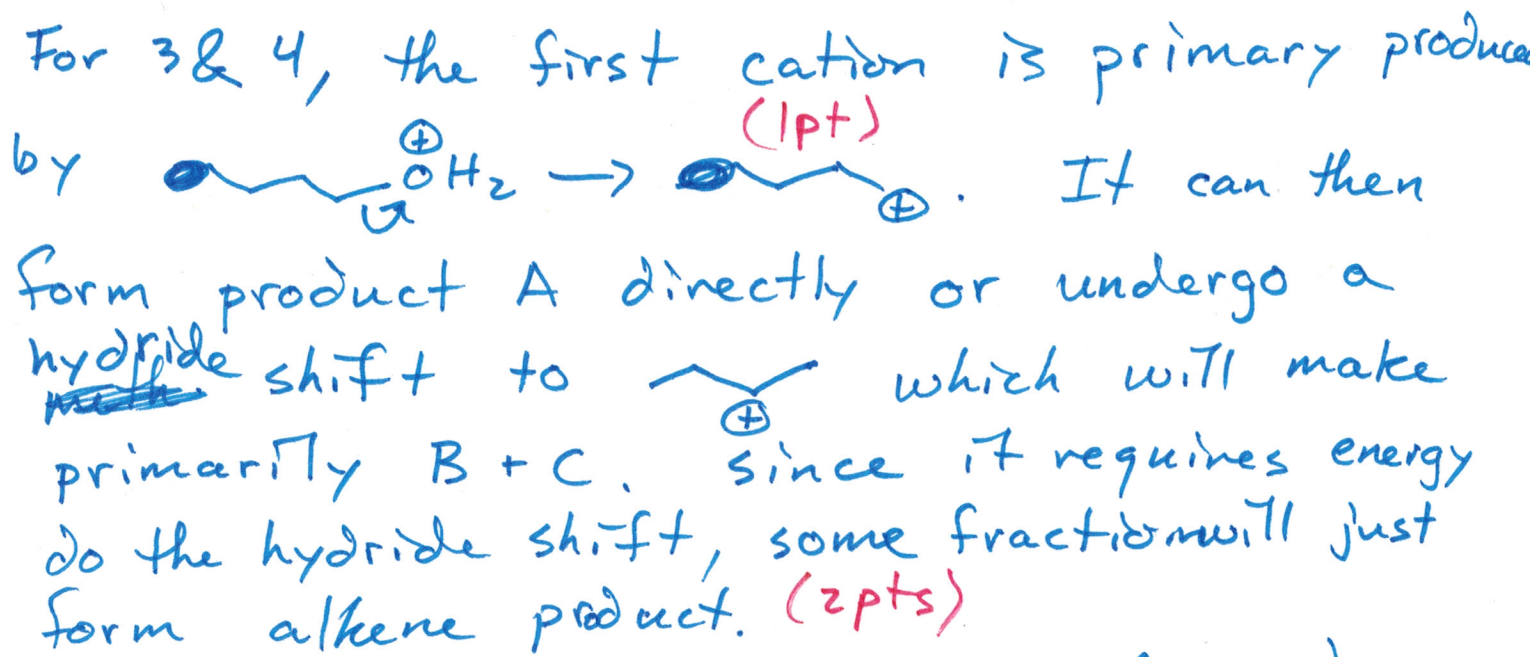 For 3 & 4, the first cation is primary produce
(1pt)
by ⊕ OH2 → ⊕ . It can then
form product A directly or undergo a
hydride shift to ⊕ which will make
primarily B + C. since it requires energy
do the hydride shift, some fraction will just
form alkene product. (2pts)